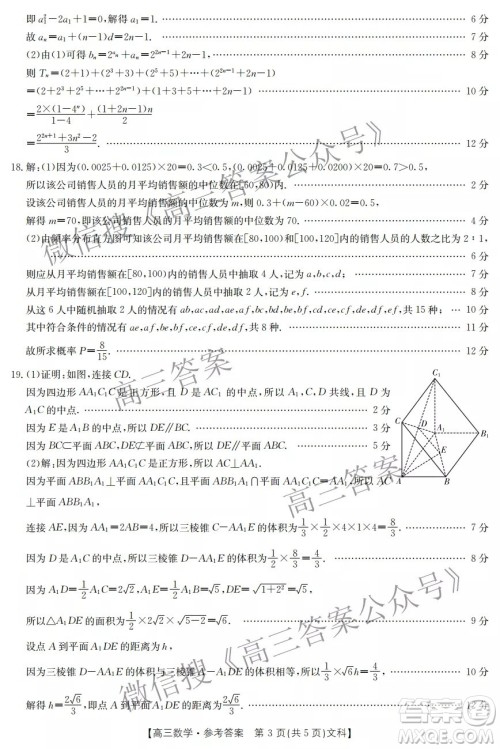 即 a₁²-2a₁+1=0,解得 a₁=1. 6分
故 aₙ=a₁+(n-1)d=2n-1. 7分
(2)由(1)可得 bₙ=2^{aₙ}+aₙ=2^{2n-1}+2n-1, 8分
则 Tₙ=(2+1)+(2³+3)+(2⁵+5)+…+(2^{2n-1}+2n-1)
=(2+2³+2⁵+…+2^{2n-1})+(1+3+5+…+2n-1) 10分
=2×(1-4ⁿ)/(1-4)+(1+2n-1)n/2
=(2^{2n+1}+3n²-2)/3. 12分
18.解:(1)因为(0.0025+0.0125)×20=0.3<0.5,(0.0025+0.0125+0.0200)×20=0.7>0.5,
所以该公司销售人员的月平均销售额的中位数在[50,80)内.
设该公司销售人员的月平均销售额的中位数为m,则0.3+(m-60)×0.02=0.5, 3分
解得 m=70,即该公司销售人员的月平均销售额的中位数为70. 4分
(2)由频率分布直方图可知该公司月平均销售额在[80,100)和[100,120]内的销售人员的人数之比为2∶1, 6分
则应从月平均销售额在[80,100)内的销售人员中抽取4人,记为a,b,c,d; 7分
从月平均销售额在[100,120]内的销售人员中抽取2人,记为e,f. 8分
从这6人中随机抽取2人的情况有ab,ac,ad,ae,af,bc,bd,be,bf,cd,ce,cf,de,df,ef,共15种; 10分
其中符合条件的情况有ae,af,be,bf,ce,cf,de,df,共8种. 11分
故所求概率 P=8/15. 12分
19.(1)证明:如图,连接CD.
因为四边形AA₁C₁C是正方形,且D是A₁C的中点,所以D是AC₁的中点. 2分
因为E是A₁B的中点,所以DE∥BC. 3分
因为BC⊂平面ABC,DE⊄平面ABC,所以DE∥平面ABC. 5分
(2)解:因为四边形AA₁C₁C为正方形,所以AC⊥AA₁.
因为平面ABB₁A₁⊥平面AA₁C₁C,平面ABB₁A₁∩平面AA₁C₁C=AA₁,所以AC
⊥平面ABB₁A₁.
连接AE,因为AA₁=2AB=4,所以三棱锥C-AA₁E的体积为1/3×1/2×4×1×4=8/3. 7分
因为D是A₁C的中点,所以三棱锥D-AA₁E的体积为1/2×8/3=4/3. 8分
因为A₁D=1/2A₁C=2√2,A₁E=1/2A₁B=√5,DE=√(1²+2²)=√5,
所以△A₁DE的面积为1/2×2√2×√(5-2)=√6. 9分
设点A到平面A₁DE的距离为h,
因为三棱锥D-AA₁E的体积与三棱锥A-A₁DE的体积相等,所以1/3×√6h=4/3, 10分
解得 h=2√6/3,即点A到平面A₁DE的距离为2√6/3. 12分
C₁
C
D
A₁
B₁
E
A
B
【高三数学·参考答案 第3页(共5页)文科】
微信搜《高三答案公众号》
高三答案
高三答案
微信搜《高三答案公众号》